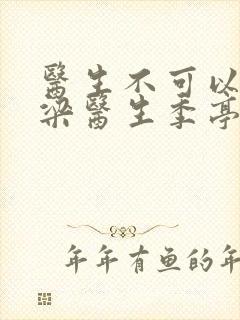 醫生不可以
梁醫生季亭
年年有鱼的年